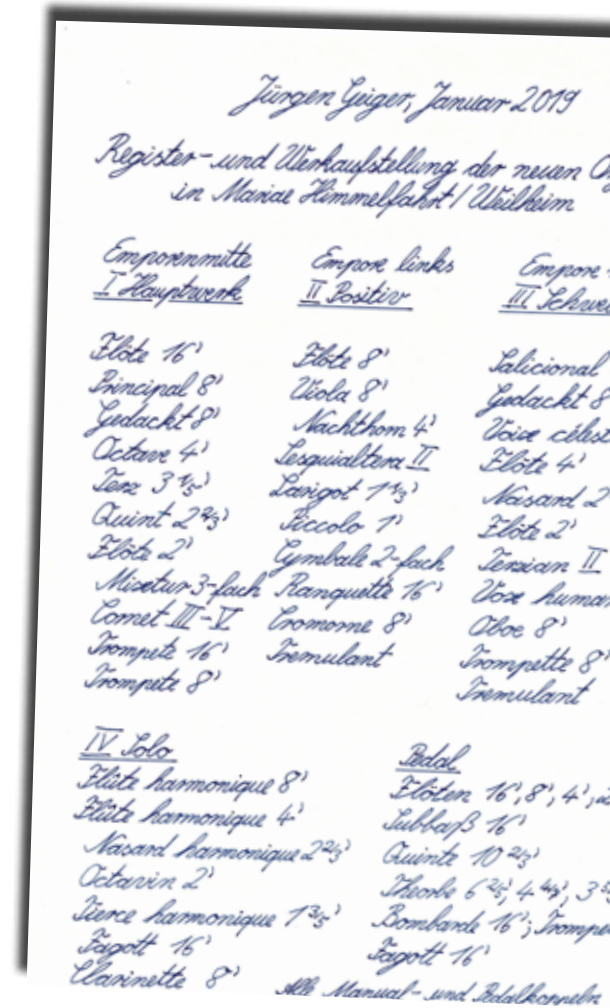 Jürgen Geiger, Januar 2019
Register- und Werkaufstellung der neuen
in Mariae Himmelfahrt / Weilheim
Emporenmitte
I Hauptwerk
Flöte 16'
Principal 8'
Gedackt 8'
Octave 4'
Terz 3 1/5'
Quint 2 2/3'
Flöte 2'
Mixtur 3-fach
Cornet III-V
Trompete 16'
Trompete 8'
Empore links
II Positiv
Flöte 8'
Viola 8'
Nachthorn 4'
Sesquialtera II
Larigot 1 1/3'
Piccolo 1'
Cymbale 2-fach
Ranquette 16'
Cromorne 8'
Tremulant
Empore
III Schwe
Salicional
Gedackt 8
Voix célest
Flöte 4'
Nasard 2
Flöte 2'
Terzian II
Vox human
Oboe 8'
Trompette 8'
Tremulant
IV Solo
Flûte harmonique 8'
Flûte harmonique 4'
Nasard harmonique 2 2/3'
Octavin 2'
Tierce harmonique 1 3/5'
Fagott 16'
Clarinette 8'
Pedal
Flöten 16', 8', 4', 2
Subbaß 16'
Quinte 10 2/3'
Theorbe 6 2/5', 4 4/7', 3
Bombarde 16'; Trompe
Fagott 16'
Alle Manual- und Pedalkoppeln